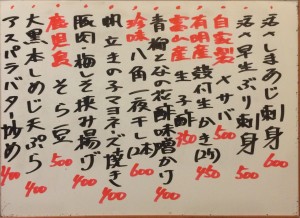 活しまあじ刺身 600
活さ早生ぶり刺身 500
自家製 〆サバ 500
有明産 殻付生かき(2ケ) 450
宮古産 生子酢 350
青柳とねぎの花酢味噌かけ 400
珍味 八角一夜干し(1本) 600
帆立きの子マヨネーズ焼き 400
豚肉・梅しそ挟み揚げ 400
鹿児島 そら豆 500
大黒本しめじ天ぷら 400
アスパラバター炒め 400